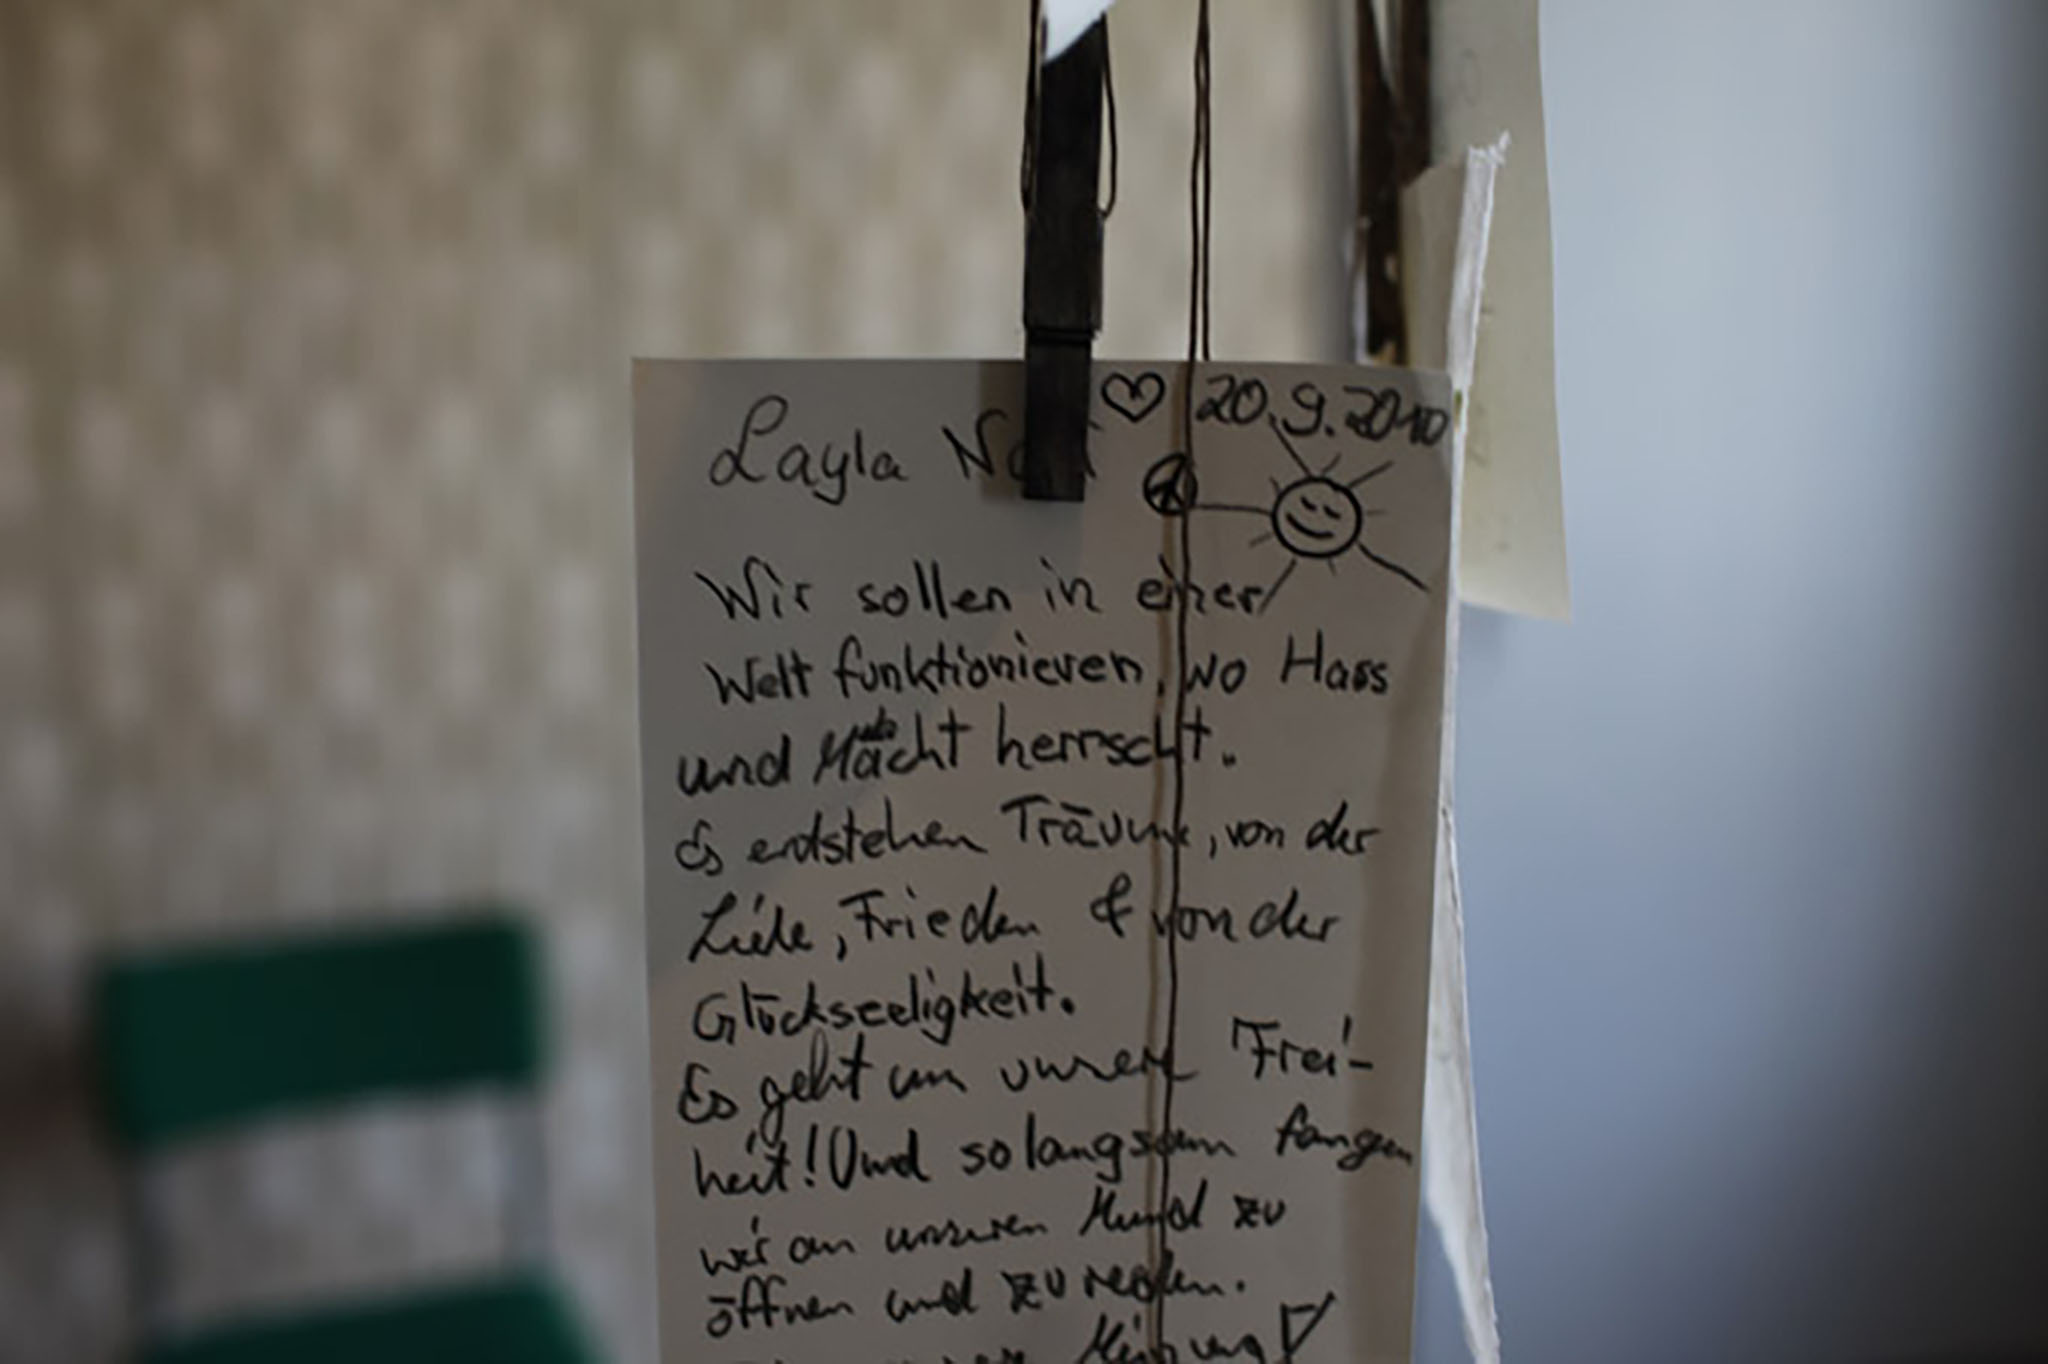 Layla ♡ 20.9.2010
Wir sollen in einer
Welt funktionieren, wo Hass
und Macht herrscht.
Es entstehen Träume, von der
Liebe, Frieden & von der
Glückseeligkeit.
Es geht um unsere Frei-
heit! Und so langsam fangen
wir an unseren Mund zu
öffnen und zu reden.
Meinung!